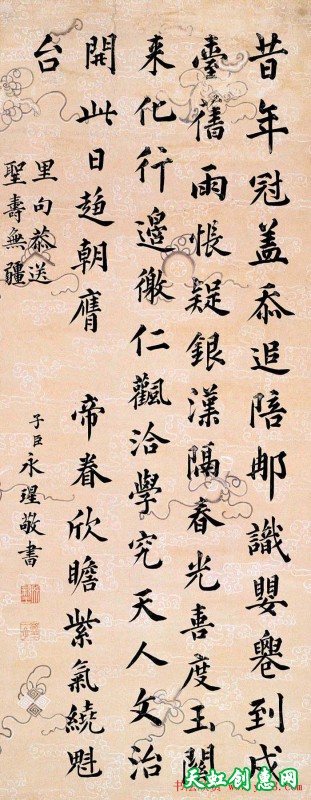 昔年冠盖忝追陪郍識嬰到戍
臺舊雨悵疑銀漢隔春光喜度玉關
來化行邊徼仁飌洽學究天人文治
開此日趍朝膺 帝眷欣瞻紫氣繞魁
台
里句恭送
聖壽無疆
子臣永瑆敬書
天虹创惠网